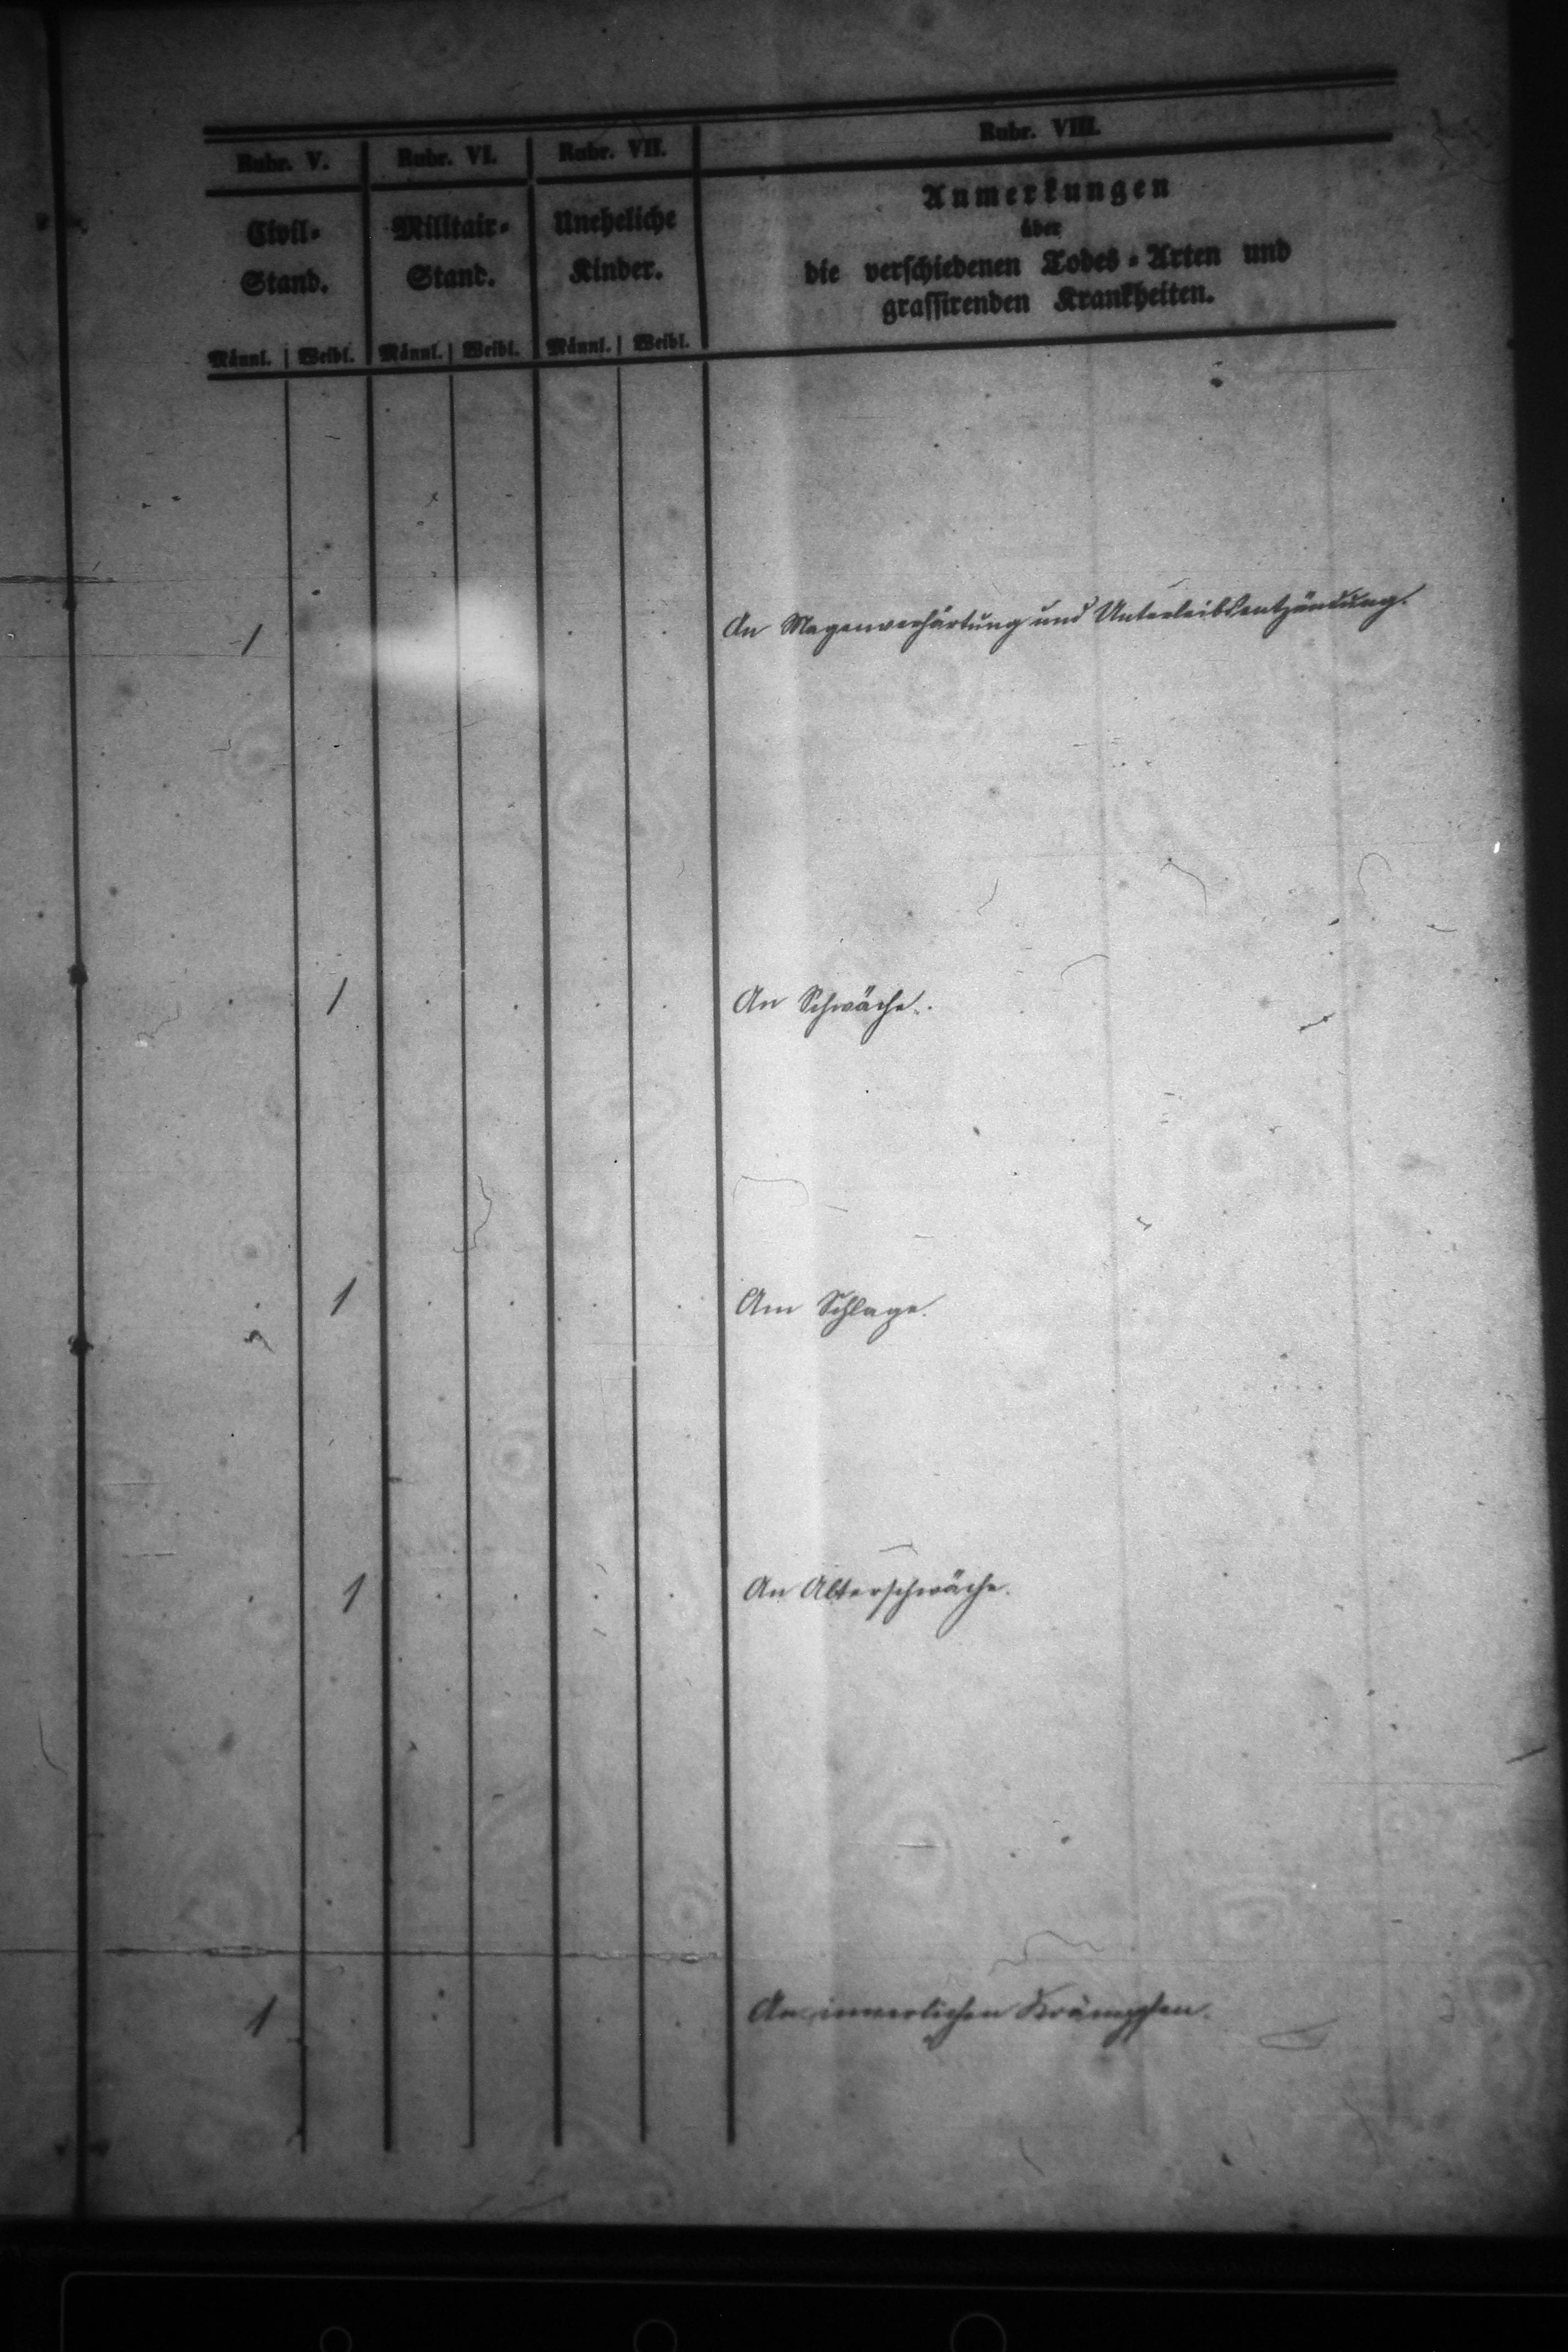 Rubr. V. Rubr. VI. Rubr. VII. Rubr. VIII.
Civil-Stand. Militair-Stand. Uneheliche Kinder. Anmerkungen
über
die verschiedenen Todes-Arten und
grassirenden Krankheiten.
Männl. | Weibl. Männl. | Weibl. Männl. | Weibl.
1 . . . . An Magenverhärtung und Unterleibsentzündung.
. 1 . . . . An Schwäche.
. 1 . . . . Am Schlage.
. 1 . . . . An Alterschwäche.
1 . . . . . An innerlichen Krämpfen.